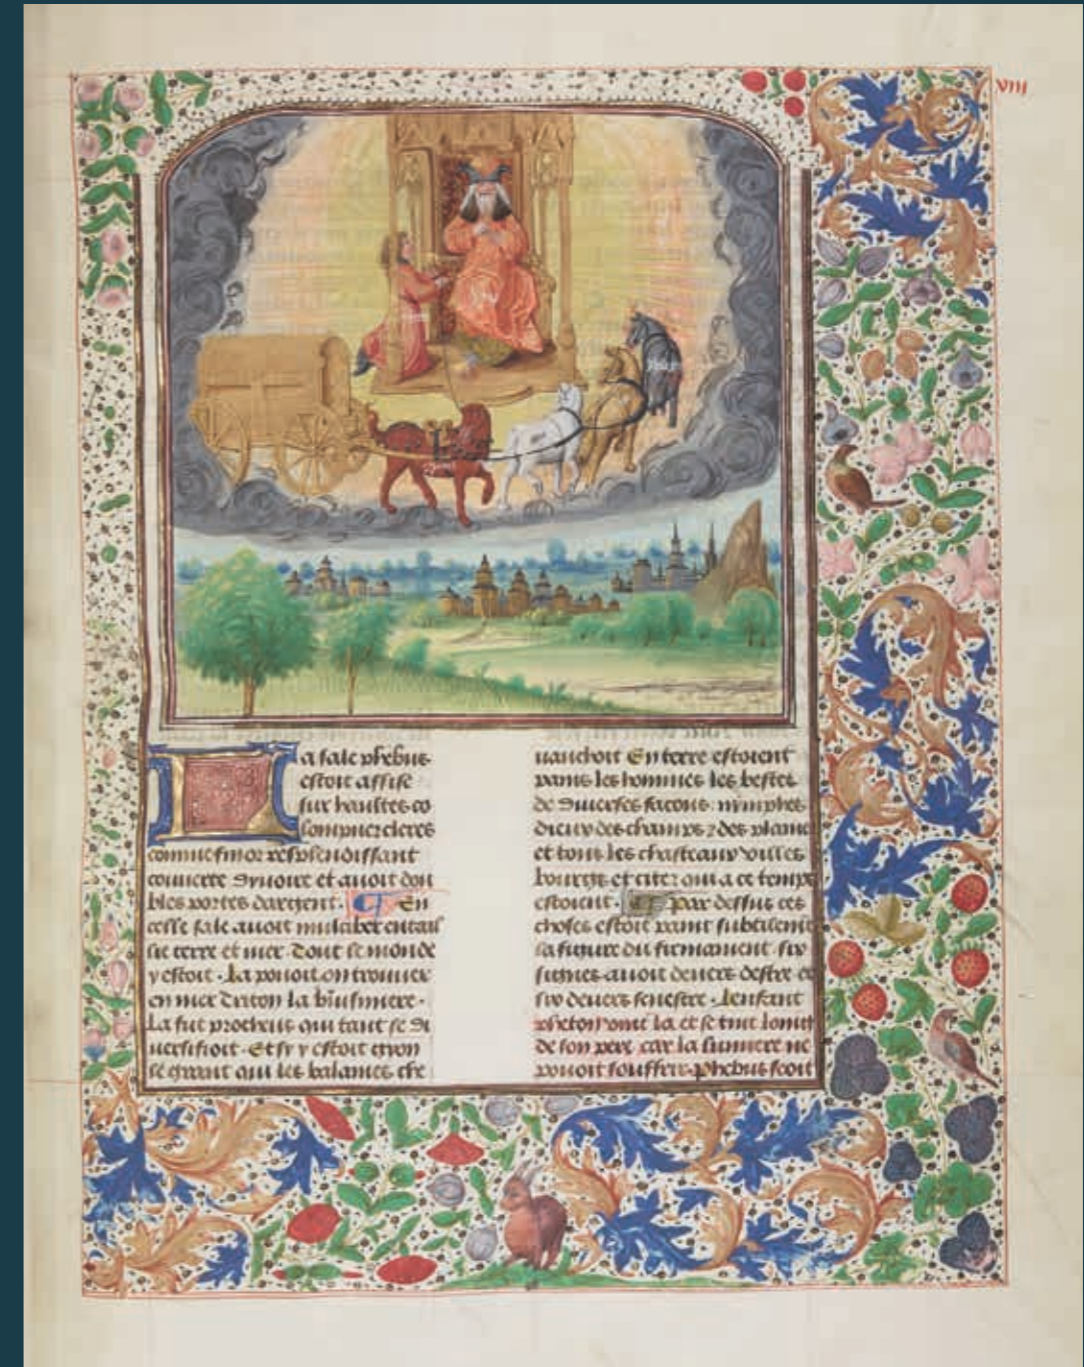 viii
La sale phebus
estoit assise
sur haultes co
lompnes cleres
comme fin or resplendissant
couuerte dyuoire et auoit dou
bles portes dargent. En
celle sale auoit mulciber entail
lie terre et mer. Tout le monde
y estoit. La pouoit on trouuer
en mer Triton la
La fut protheus qui tant se di
uersifioit. Et sy y estoit egeon
le geant qui les balaines che
uauchoit En terre estoient
pains les hommes les bestes
de diuerses facons nymphes
dieux des champs des
et tous les chasteaux villes
bourgz et citez qui a ce temps
estoient. Par dessus ces
choses estoit paint subtilement
la figure du firmament six
signes auoit deuers destre et
six deuers senestre. Lenfant
pheton vint la et se tint loing
de son pere car la lumiere ne
pouoit souffrir. Phebus scoit